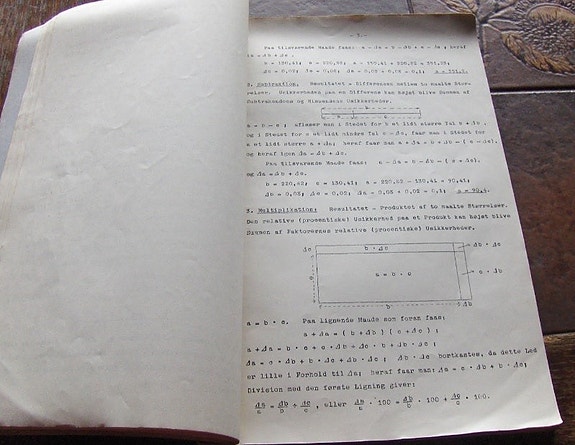 - 2.-
Paa tilsvarende Maade faas: a - Δa = b - Δb + c - Δc ; heraf
Δa = Δb + Δc .
b = 130,41; c = 220,82; a = 130,41 + 220,82 = 351,23;
Δa = 0,03 + 0,08 = 0,1;
Subtraktion: Resultatet = Differensen mellem to maalte Større-
relser. Usikkerheden paa en Differens kan højst blive Summen af
Subtrahendens og Minuendens Usikkerheder.
a = b - c ; aflæser man i Stedet for b et lidt større Tal b + Δb ,
og i Stedet for c et lidt mindre Tal c - Δc, faar man i Stedet for
a et lidt større a + Δa; heraf faar man a + Δa = b + Δb - ( c - Δc),
og heraf igen Δa = Δb + Δc.
Paa tilsvarende Maade faas: a - Δa = b - Δb - ( c + Δc);
og Δa = Δb + Δc.
b = 220,82; c = 130,41; a = 220,82 - 130,41 = 90,41;
Δb = 0,08; Δc = 0,03; Δa = 0,08 + 0,03 = 0,1; a = 90,4.
3. Multiplikation: Resultatet = Produktet af to maalte Størrelser.
Den relative (procentiske) Usikkerhed paa et Produkt kan højst blive
Summen af Faktorernes relative (procentiske) Usikkerheder.
Δc
b · Δc
Δb · Δc
c
a = b · c
c · Δb
b
Δb
a = b · c. Paa lignende Maade som foran faas:
a + Δa = ( b + Δb ) ( c + Δc ) ;
a + Δa = b · c + c · Δb + Δc · b + Δb · Δc ;
Δa = c · Δb + b · Δc + Δb · Δc ; Δb · Δc bortkastes, da dette Led
er lille i Forhold til Δa; heraf faar man: Δa = c · Δb + b · Δc ;
Division med den første Ligning giver:
Δa/a = Δb/b + Δc/c , eller Δa/a · 100 = Δb/b · 100 + Δc/c · 100.